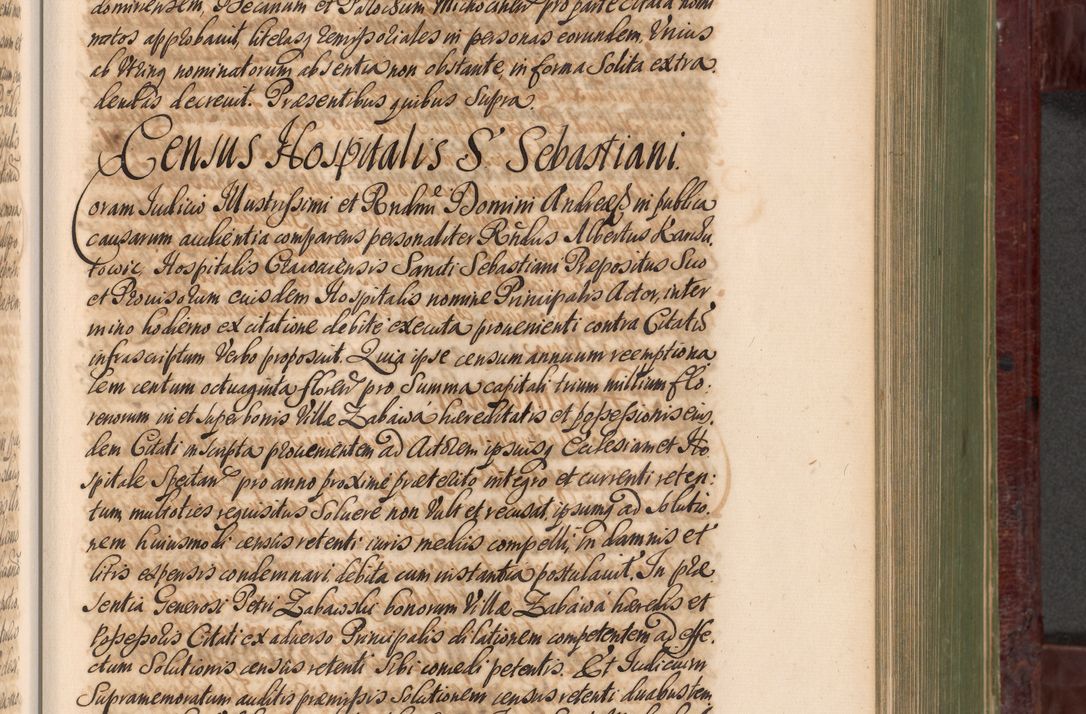 dominensem, Decanum et
natos approbavit, literasq remissoriales in personas eorundem, Unius
ab Utring nominatorum absentia non obstante, in forma Solita extra
dendas decreuit. Præsentibus quibus Supra.
Census Hospitalis S. Sebastiani.
Coram Iudicio Illustrissimi et Rndmi Domini Andreæ in publica
causarum audientia comparens personaliter Rndus Albertus Kandu,
towic, Hospitalis Cracoviensis Sancti Sebastiani Prepositus Suo
et Prouisorum eiusdem Hospitalis nomine Principalis Actor, in ter
mino hodierno ex citatione debite executa prouenienti contra Citatū
infrascriptum Verbo proposuit. Quia ipse censum annuum reemptiona
lem centum octuaginta floren pro Summa capitali trium millium flo.
renorum in et super bonis Villæ Zabawa hæreditatis et possessionis eius,
dem Citati inscripta prouenientem ad Actorem ipsumq Ecclesiam et Ho
spitale Spectan pro anno proxime præterito integro et currenti reten:
tum, multoties requisitus Soluere non Vult et recusat, ipsumq ad Solutio.
nem huiusmodi census retenti iuris mediis compelli, in damnis et
litis expensis condemnari debita cum instantia postulauit. In præ
sentia Generosi Petri Zabawski bonorum Villæ Zabawa hæredis et
Possessoris Citati ex aduerso Principalis dilationem competentem ad effe.
ctum Solutionis census retenti Sibi concedi petentis. Et Iudicium
Supramemoratum auditis præmissis Solutionem census retenti duabus tem